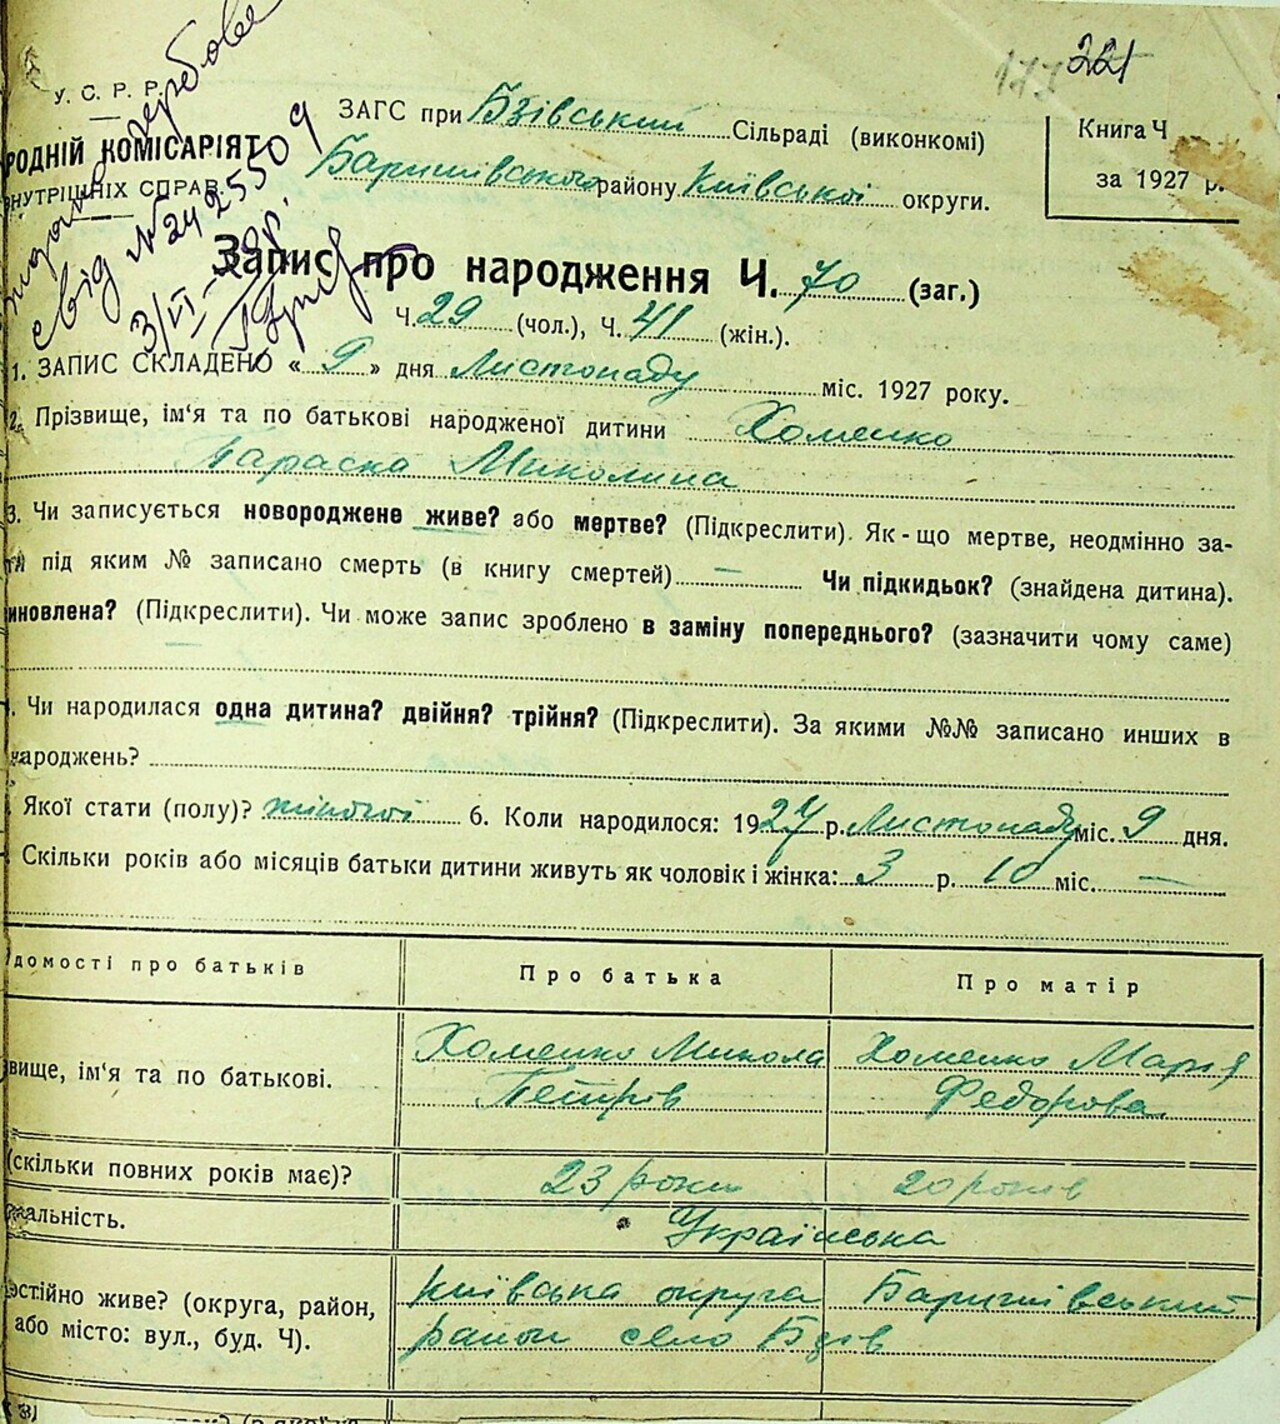 221
177
У. С. Р. Р.
РОДНІЙ КОМІСАРІЯТ
НУТРІШНІХ СПРАВ.
свід № 242550
3/VI
ЗАГС при Бзівський Сільраді (виконкомі)
Баришівського району Київської округи.
Книга Ч
за 1927 р.
Запис про народження Ч. 70 (заг.)
Ч. 29 (чол.), Ч. 41 (жін.).
1. ЗАПИС СКЛАДЕНО « 9 » дня Листопаду міс. 1927 року.
2. Прізвище, ім'я та по батькові народженої дитини Хоменко
Параска Миколина
3. Чи записується новороджене живе? або мертве? (Підкреслити). Як-що мертве, неодмінно за-
під яким № записано смерть (в книгу смертей) — Чи підкидьок? (знайдена дитина).
иновлена? (Підкреслити). Чи може запис зроблено в заміну попереднього? (зазначити чому саме)
—
Чи народилася одна дитина? двійня? трійня? (Підкреслити). За якими №№ записано инших в
народжень?
Якої стати (полу)? жіночої 6. Коли народилося: 1927 р. Листопаду міс. 9 дня.
Скільки років або місяців батьки дитини живуть як чоловік і жінка: 3 р. 10 міс. —
домості про батьків Про батька Про матір
звище, ім'я та по батькові. Хоменко Микола Хоменко Марія
Петрів Федорова
(скільки повних років має)? 23 роки 20 років
альність. Українська
остійно живе? (округа, район, Київська округа Баришівський
або місто: вул., буд. Ч). район село Бзів